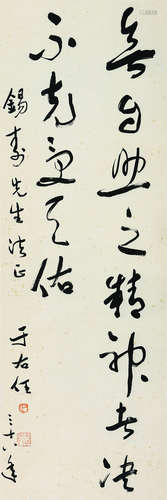 無自助之精神者決
不克受天佑
錫壽先生法正
于右任
三十八年